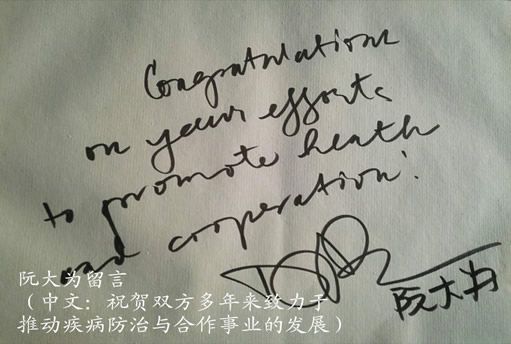 Congratulations
on your efforts
to promote heath
and cooperation!
阮大为
阮大为留言
（中文：祝贺双方多年来致力于
推动疾病防治与合作事业的发展）